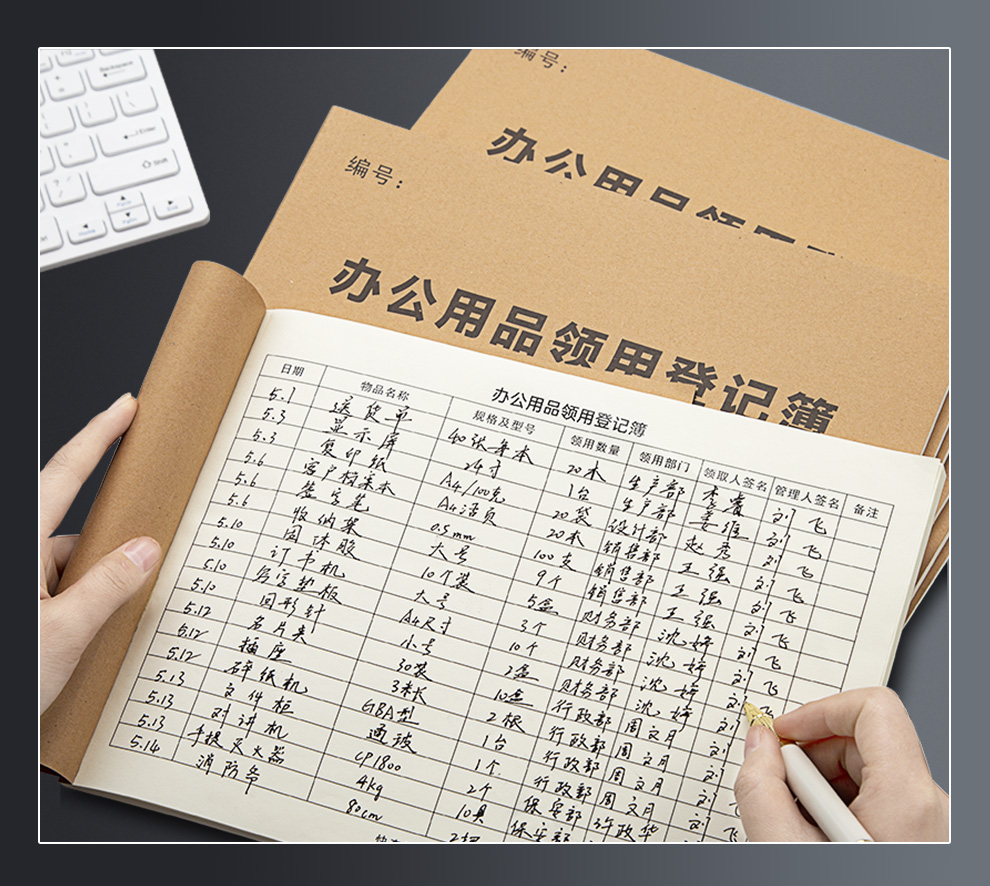 编号:
办公用品领用
编号:
办公用品领用登记簿
办公用品领用登记簿
日期 物品名称 规格及型号 领用数量 领用部门 领取人签名 管理人签名 备注
5.1 送货单 40张每本 20本 生产部 李睿 刘飞
5.3 显示屏 24寸 1台 生产部 姜维 刘飞
5.3 复印纸 A4/100克 20袋 设计部 赵亮 刘飞
5.6 客户档案本 A4活页 20本 销售部 王强 刘飞
5.6 签字笔 0.5mm 100支 销售部 王强 刘飞
5.6 收纳架 大号 9个 销售部 王强 刘飞
5.10 固体胶 10个装 5盒 财务部 沈婷 刘飞
5.10 订书机 大号 3个 财务部 沈婷 刘飞
5.10 写字垫板 A4尺寸 10个 财务部 沈婷 刘
5.10 回形针 小号 2盒 财务部 沈婷 刘
5.12 名片夹 30装 10盒 行政部 周文月 刘
5.12 插座 3米长 2根 行政部 周文月 刘
5.12 碎纸机 GBA型 1台 行政部 周文月 刘
5.13 文件柜 通玻 1个 行政部 周文月 刘
5.13 对讲机 CP1800 2个 保安部 许政华 刘飞
5.13 手提灭火器 4kg 10具 保安部
5.14 消防斧 80cm
Backspace
Enter
Shift
Home
End